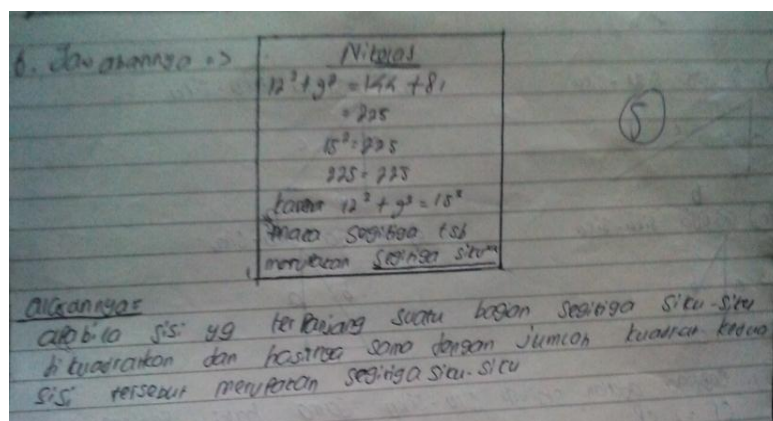 6. Jawabannya =>
Nikolas
12² + 9² = 144 + 81
= 225
15² = 225
225 = 225
karena 12² + 9² = 15²
maka segitiga tsb
merupakan segitiga siku²
5
alasannya =
apabila sisi yg terpanjang suatu bagian segitiga siku-siku
di kuadratkan dan hasilnya sama dengan jumlah kuadrat kedua
sisi tersebut merupakan segitiga siku-siku